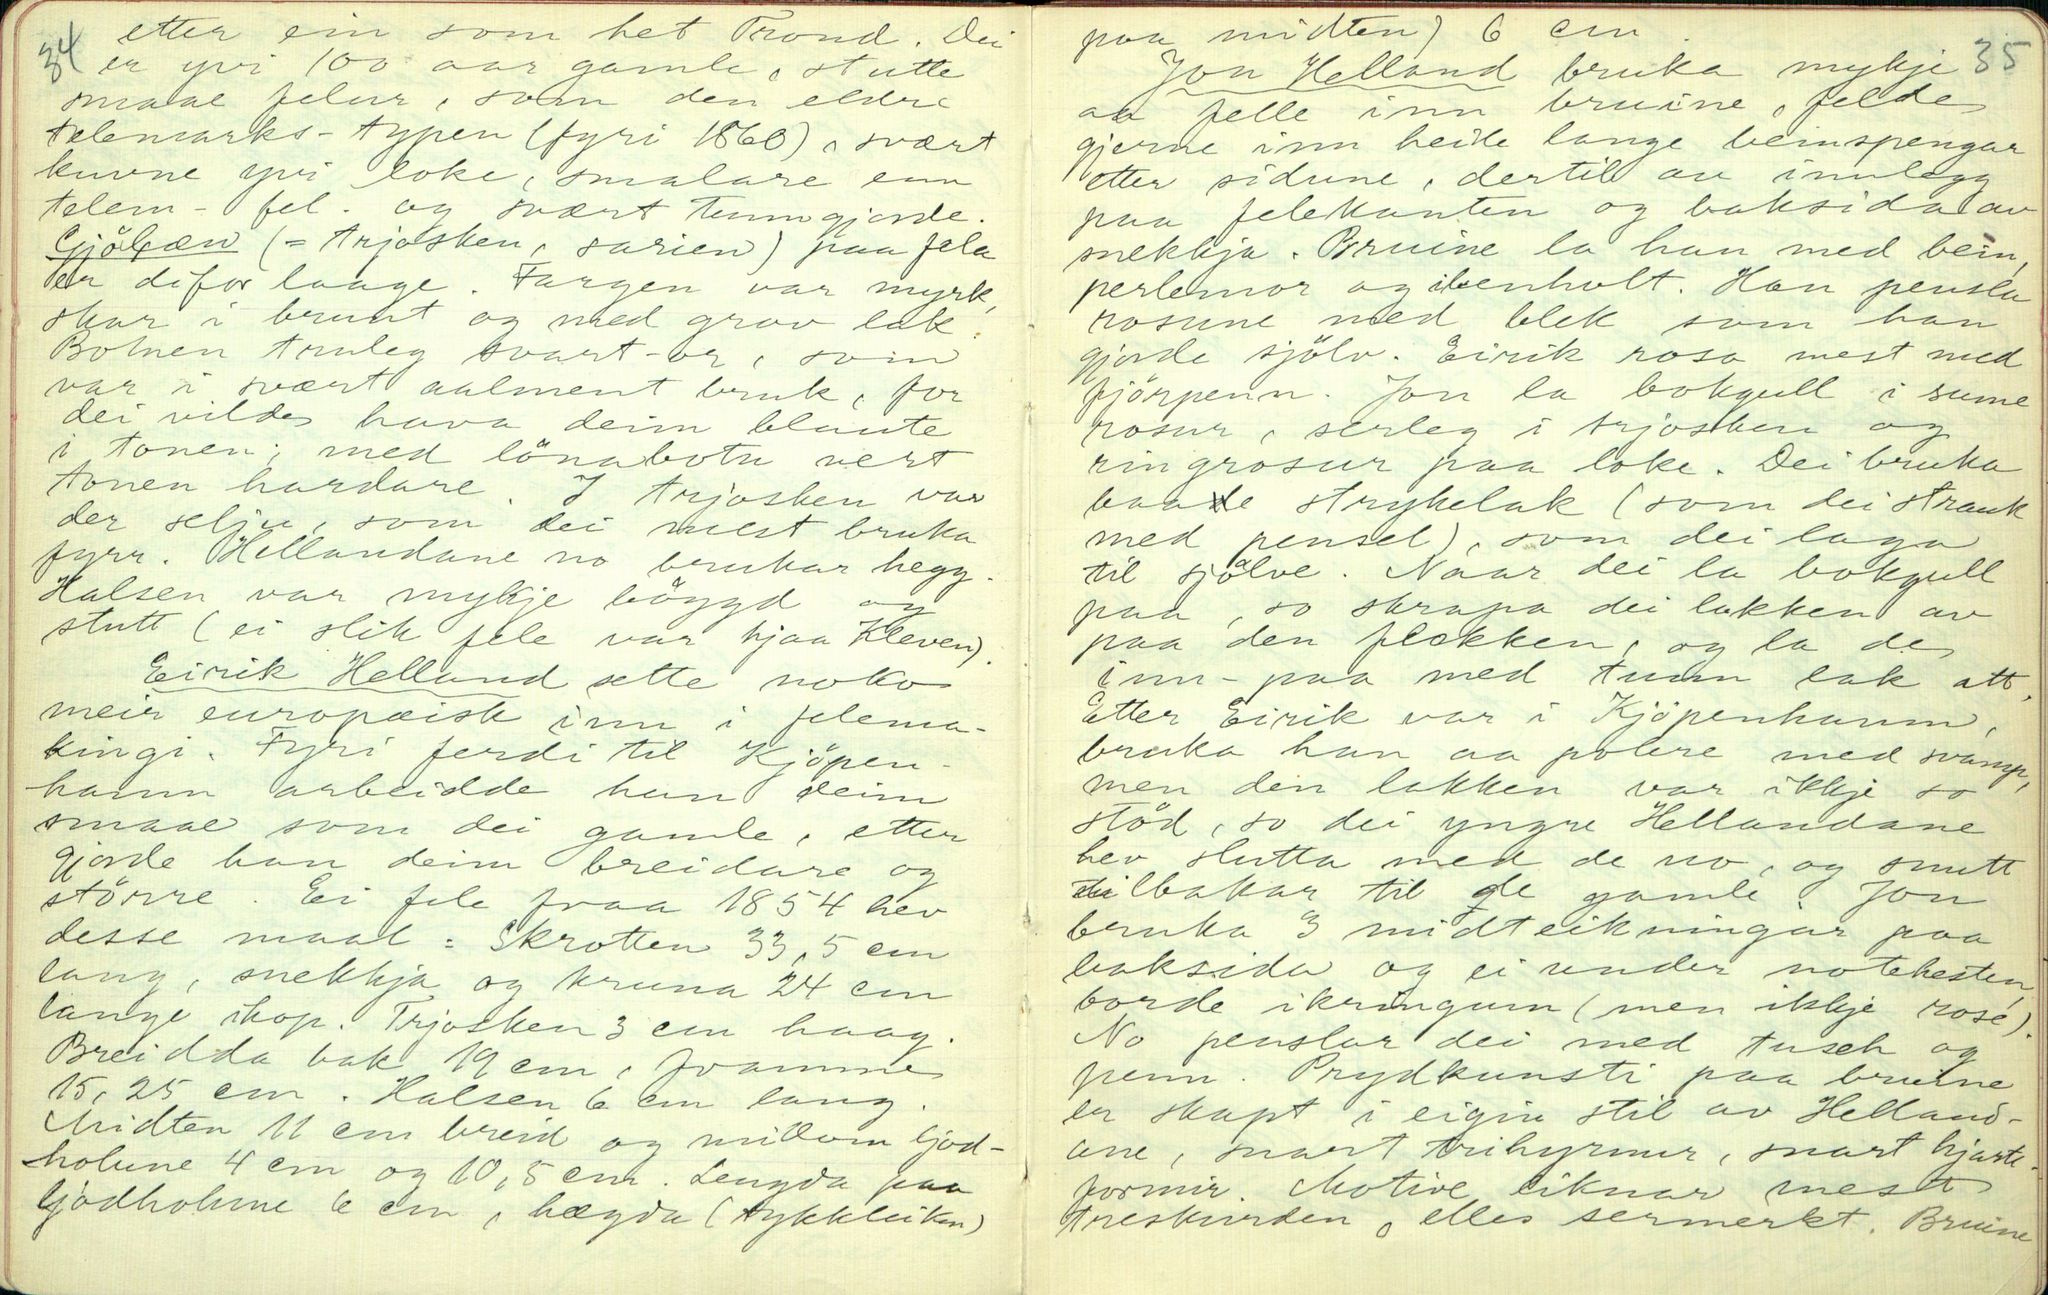 34
etter ein som het Trond. Dei
er yvi 100 aar gamle, stutte
smaae felur, som den eldre
telemarks-typen (fyri 1860), svært
kuvne yvi loke, smalare enn
telem-fel. og svært tunngjorde.
(= trjosken, sarien) paa fela
er difor laage. Fargen var myrk,
skar i brunt og med grov lak.
Botnen truleg svart-or, som
var i svært aalment bruk, for
dei vilde hava deim blaute
i tonen; med lönabotn vert
tonen hardare. I trjosken var
der selju, som dei mest bruka
fyrr. Hellandane no brukar hegg.
Halsen var mykje böygd og
stutt (ei slik fele var hjaa Kleven).
Eirik Helland sette noko
meir europæisk inn i felema-
kingi. Fyri ferdi til Kjöpen-
hamn arbeidde han deim
smaae som dei gamle, etter
gjorde han deim breidare og
större. Ei fele fraa 1854 hev
desse maal: Skrotten 33,5 cm
lang, snekkja og kruna 24 cm
lange ihop. Trjosken 3 cm haag.
Breidda bak 19 cm, framme
15,25 cm. Halsen 6 cm lang.
Midten 11 cm breid og millom ljod-
holune 4 cm og 10,5 cm. Lengda paa
ljodholune 6 cm, hægda (tykkleiken)
35
paa midten) 6 cm.
Jon Helland bruka mykje
aa felle inn bruine, felde
gjerne inn heile lange beinspengar
etter sidune, dertil av innlegg
paa felekanten og baksida av
snekkja. Bruine la han med bein,
perlemor og ibenholt. Han pensla
rosune med blek som han
gjorde sjölv. Eirik rosa mest med
fjörpenn. Jon la bokgull i sume
rosur, serleg i trjosken og
ringrosur paa loke. Dei bruka
baade strykelak (som dei strauk
med pensel), som dei laga
til sjölve. Naar dei la bokgull
paa, so skrapa dei lakken av
paa den flekken, og la de
inn-paa med tunn lak att.
Etter Eirik var i Kjöpenhamn,
bruka han aa polere med svamp,
men den lakken var ikkje so
stöd, so dei yngre Hellandane
hev slutta med de no, og snutt
tilbakar til de gamle. Jon
bruka 3 midteikningar paa
baksida og ei under notehesten,
borde ikringum (men ikkje rose).
No penslar dei med tusch og
penn. Prydkunsti paa bruine
er skapt i eigin stil av Helland-
ane, snart trihyrnur, snart hjarte-
formir. Motive liknar mest
treskurden, elles sermerkt. Bruine